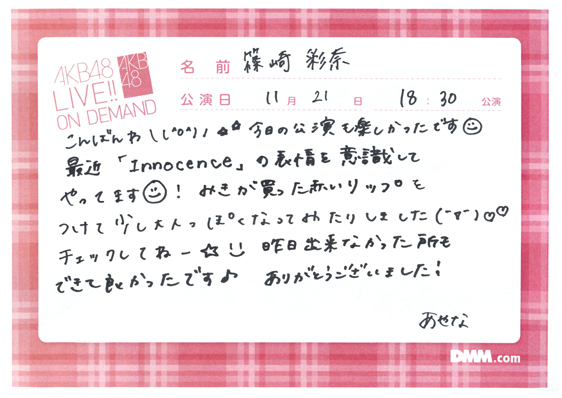 AKB48
LIVE!!
ON DEMAND
AKB
48
名前 篠崎 彩奈
公演日 11月21日 18:30公演
こんばんわ\(^o^)/☆☆今日の公演も楽しかったです☺
最近「Innocence」の表情を意識して
やってます☺!みきが買った赤いリップを
つけて少し大人っぽくなってみたりしました(¯▽¯)♡♡
チェックしてねー☆ 昨日出来なかった所も
できて良かったです♪ ありがとうございました!
あやな
DMM.com